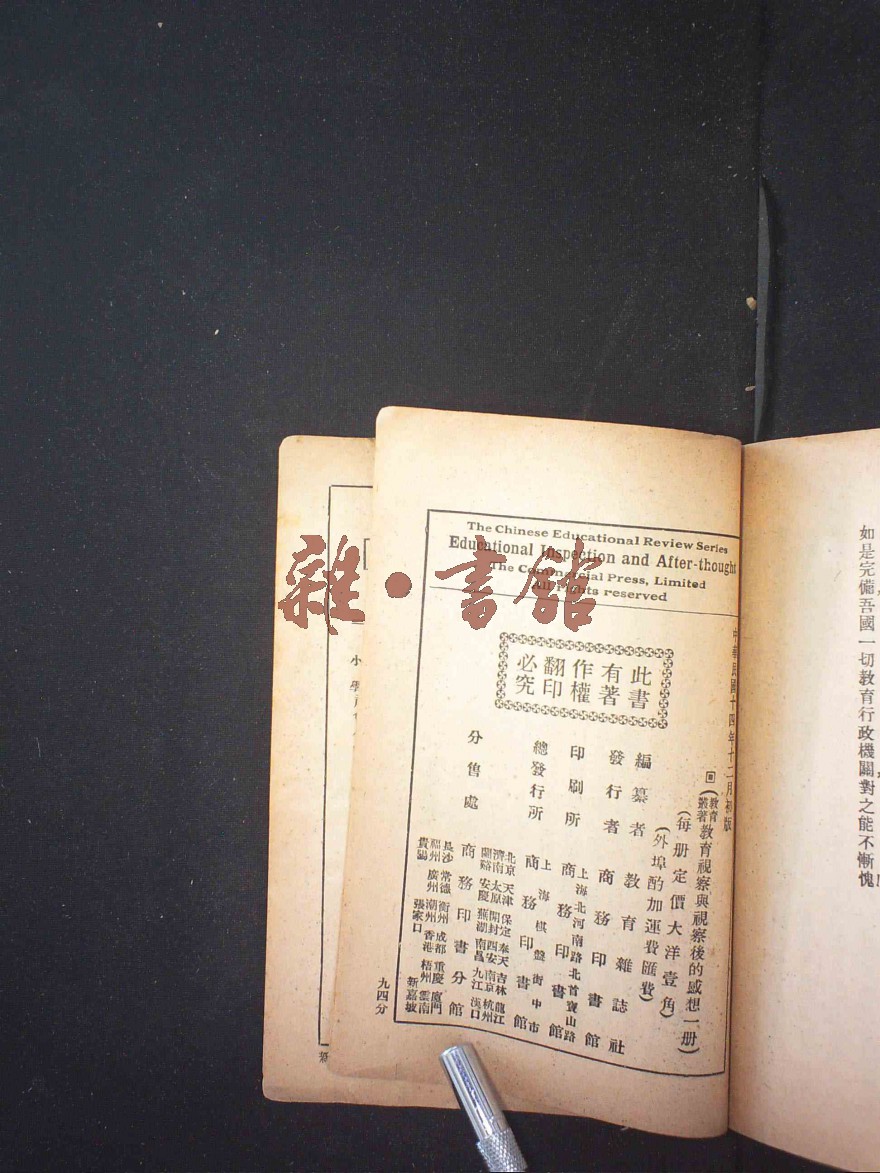 The Chinese Educational Review Series
Educational Inspection and After-thought
The Commercial Press, Limited
All rights reserved
雜·書館
此書
有著
作權
翻印
必究
中華民國十四年十二月初版
教育叢著
教育視察與視察後的感想一册
每册定價大洋壹角
外埠酌加運費匯費
編纂者 教育雜誌社
發行者 商務印書館
印刷所 上海北河南路北首寶山路
商務印書館
總發行所 上海棋盤街中市
商務印書館
分售處
北京 天津 保定 奉天 吉林 龍江
濟南 太原 開封 西安 南京 杭州
蘭谿 安慶 蕪湖 南昌 九江 漢口
商務印書分館
長沙 常德 衡州 成都 重慶 廈門
福州 廣州 潮州 香港 梧州 雲南
貴陽 張家口 新嘉坡
九四分
如是完備吾國一切教育行政機關對之能不慚愧!
小學